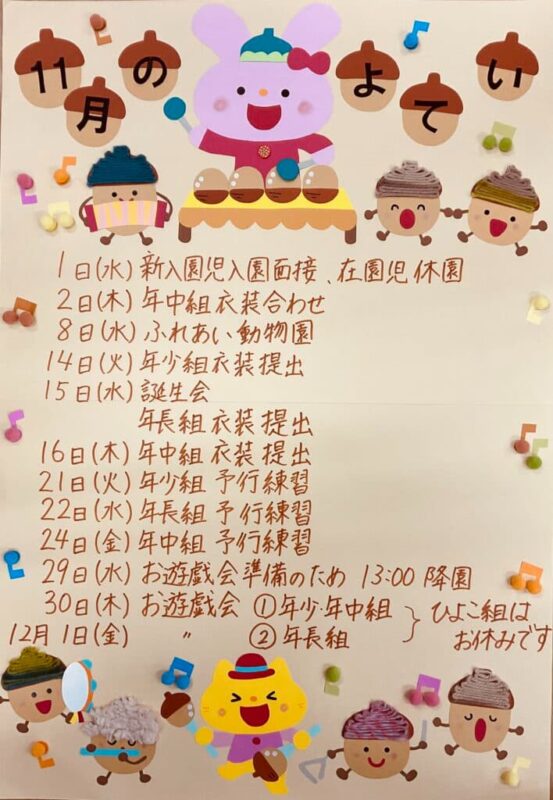 11月のよてい
1日(水) 新入園児入園面接、在園児休園
2日(木) 年中組衣装合わせ
8日(水) ふれあい動物園
14日(火) 年少組衣装提出
15日(水) 誕生会
年長組衣装提出
16日(木) 年中組衣装提出
21日(火) 年少組予行練習
22日(水) 年長組予行練習
24日(金) 年中組予行練習
29日(水) お遊戯会準備のため 13:00降園
30日(木) お遊戯会 ①年少・年中組 } ひよこ組は
12月1日(金) 〃 ②年長組 お休みです